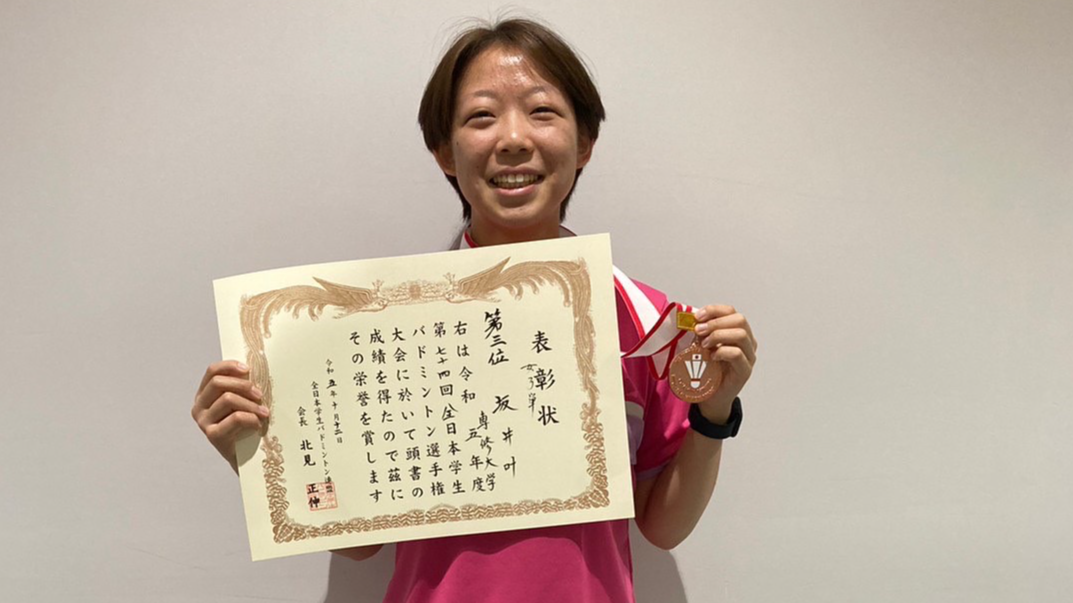 表彰状
女子単
第三位
専修大学
坂井叶
右は令和五年度
第七十四回全日本学生
バドミントン選手権
大会に於いて頭書の
成績を得たので茲に
その栄誉を賞します
令和五年十月十二日
全日本学生バドミントン連盟
会長 北見正伸